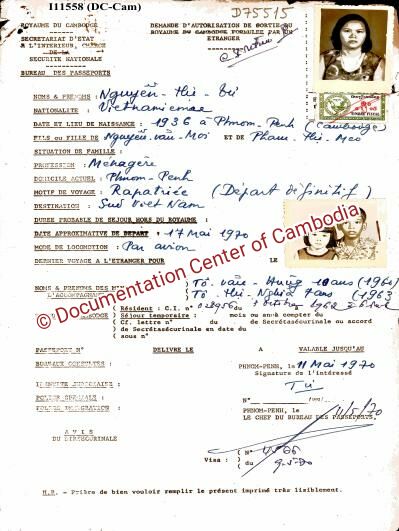 I11558 (DC-Cam)
D75515
ROYAUME DU CAMBODGE
SECRETARIAT D'ETAT
A L'INTERIEUR, CHARGE
DE LA
SECURITE NATIONALE
BUREAU DES PASSEPORTS
DEMANDE D'AUTORISATION DE SORTIE DU
ROYAUME DU CAMBODGE FORMULEE PAR UN
ETRANGER
NOMS & PRENOMS : Nguyễn - thị - Tư
NATIONALITE : Vietnamienne
DATE ET LIEU DE NAISSANCE : 1936 à Phnom-Penh (Cambodge)
FILS ou FILLE DE Nguyễn-văn-Moi ET DE Pham-thị-Meo
SITUATION DE FAMILLE :
PROFESSION : Ménagère
DOMICILE ACTUEL : Phnom-Penh
MOTIF DU VOYAGE : Rapatriée (Départ définitif)
DESTINATION : Sud Viet Nam
DUREE PROBABLE DE SEJOUR HORS DU ROYAUME :
DATE APPROXIMATIVE DE DEPART : 17 Mai 1970
MODE DE LOCOMOTION : Par avion
DERNIER VOYAGE A L'ETRANGER POUR LE
NOMS & PRENOMS DES
L'ACCOMPAGNANT
) Tô - văn - Hưng 10 ans (1960)
) Tô - thị - Nghĩa 7 ans (1963
Résident : C.I. n°
Séjour temporaire : mois ou année compter du
Cf. lettre n° du de Secrétasécurinale ou accord
de Secrétasécurinale en date du
sous n°
© Documentation Center of Cambodia
PASSEPORT N° DELIVRE LE A VALABLE JUSQU'AU
BUREAUX CONSULTES :
IDENTITE JUDICIAIRE :
POLICE SPECIALE :
POLICE IMMIGRATION :
PHNOM-PENH, le 11 Mai 1970
Signature de l'intéressé
Tư
N°
PHNOM-PENH, le 11/5/70
LE CHEF DU BUREAU DES PASSEPORTS,
AVIS
DU DIRSECURINALE
Visa : ( N°
( du 9-5-70
N.B. - Prière de bien vouloir remplir le présent imprimé très lisiblement.